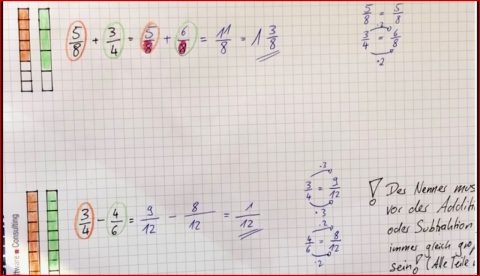 5/8 + 3/4 = 5/8 + 6/8 = 11/8 = 1 3/8
5/8 = 5/8
·2
3/4 = 6/8
·2
3/4 - 4/6 = 9/12 - 8/12 = 1/12
·3
3/4 = 9/12
·3
·2
4/6 = 8/12
·2
! Des Nenners mus
vor des Additi
oder Subtraktion
immer gleich gro
sein! (Alle Teile
Consulting